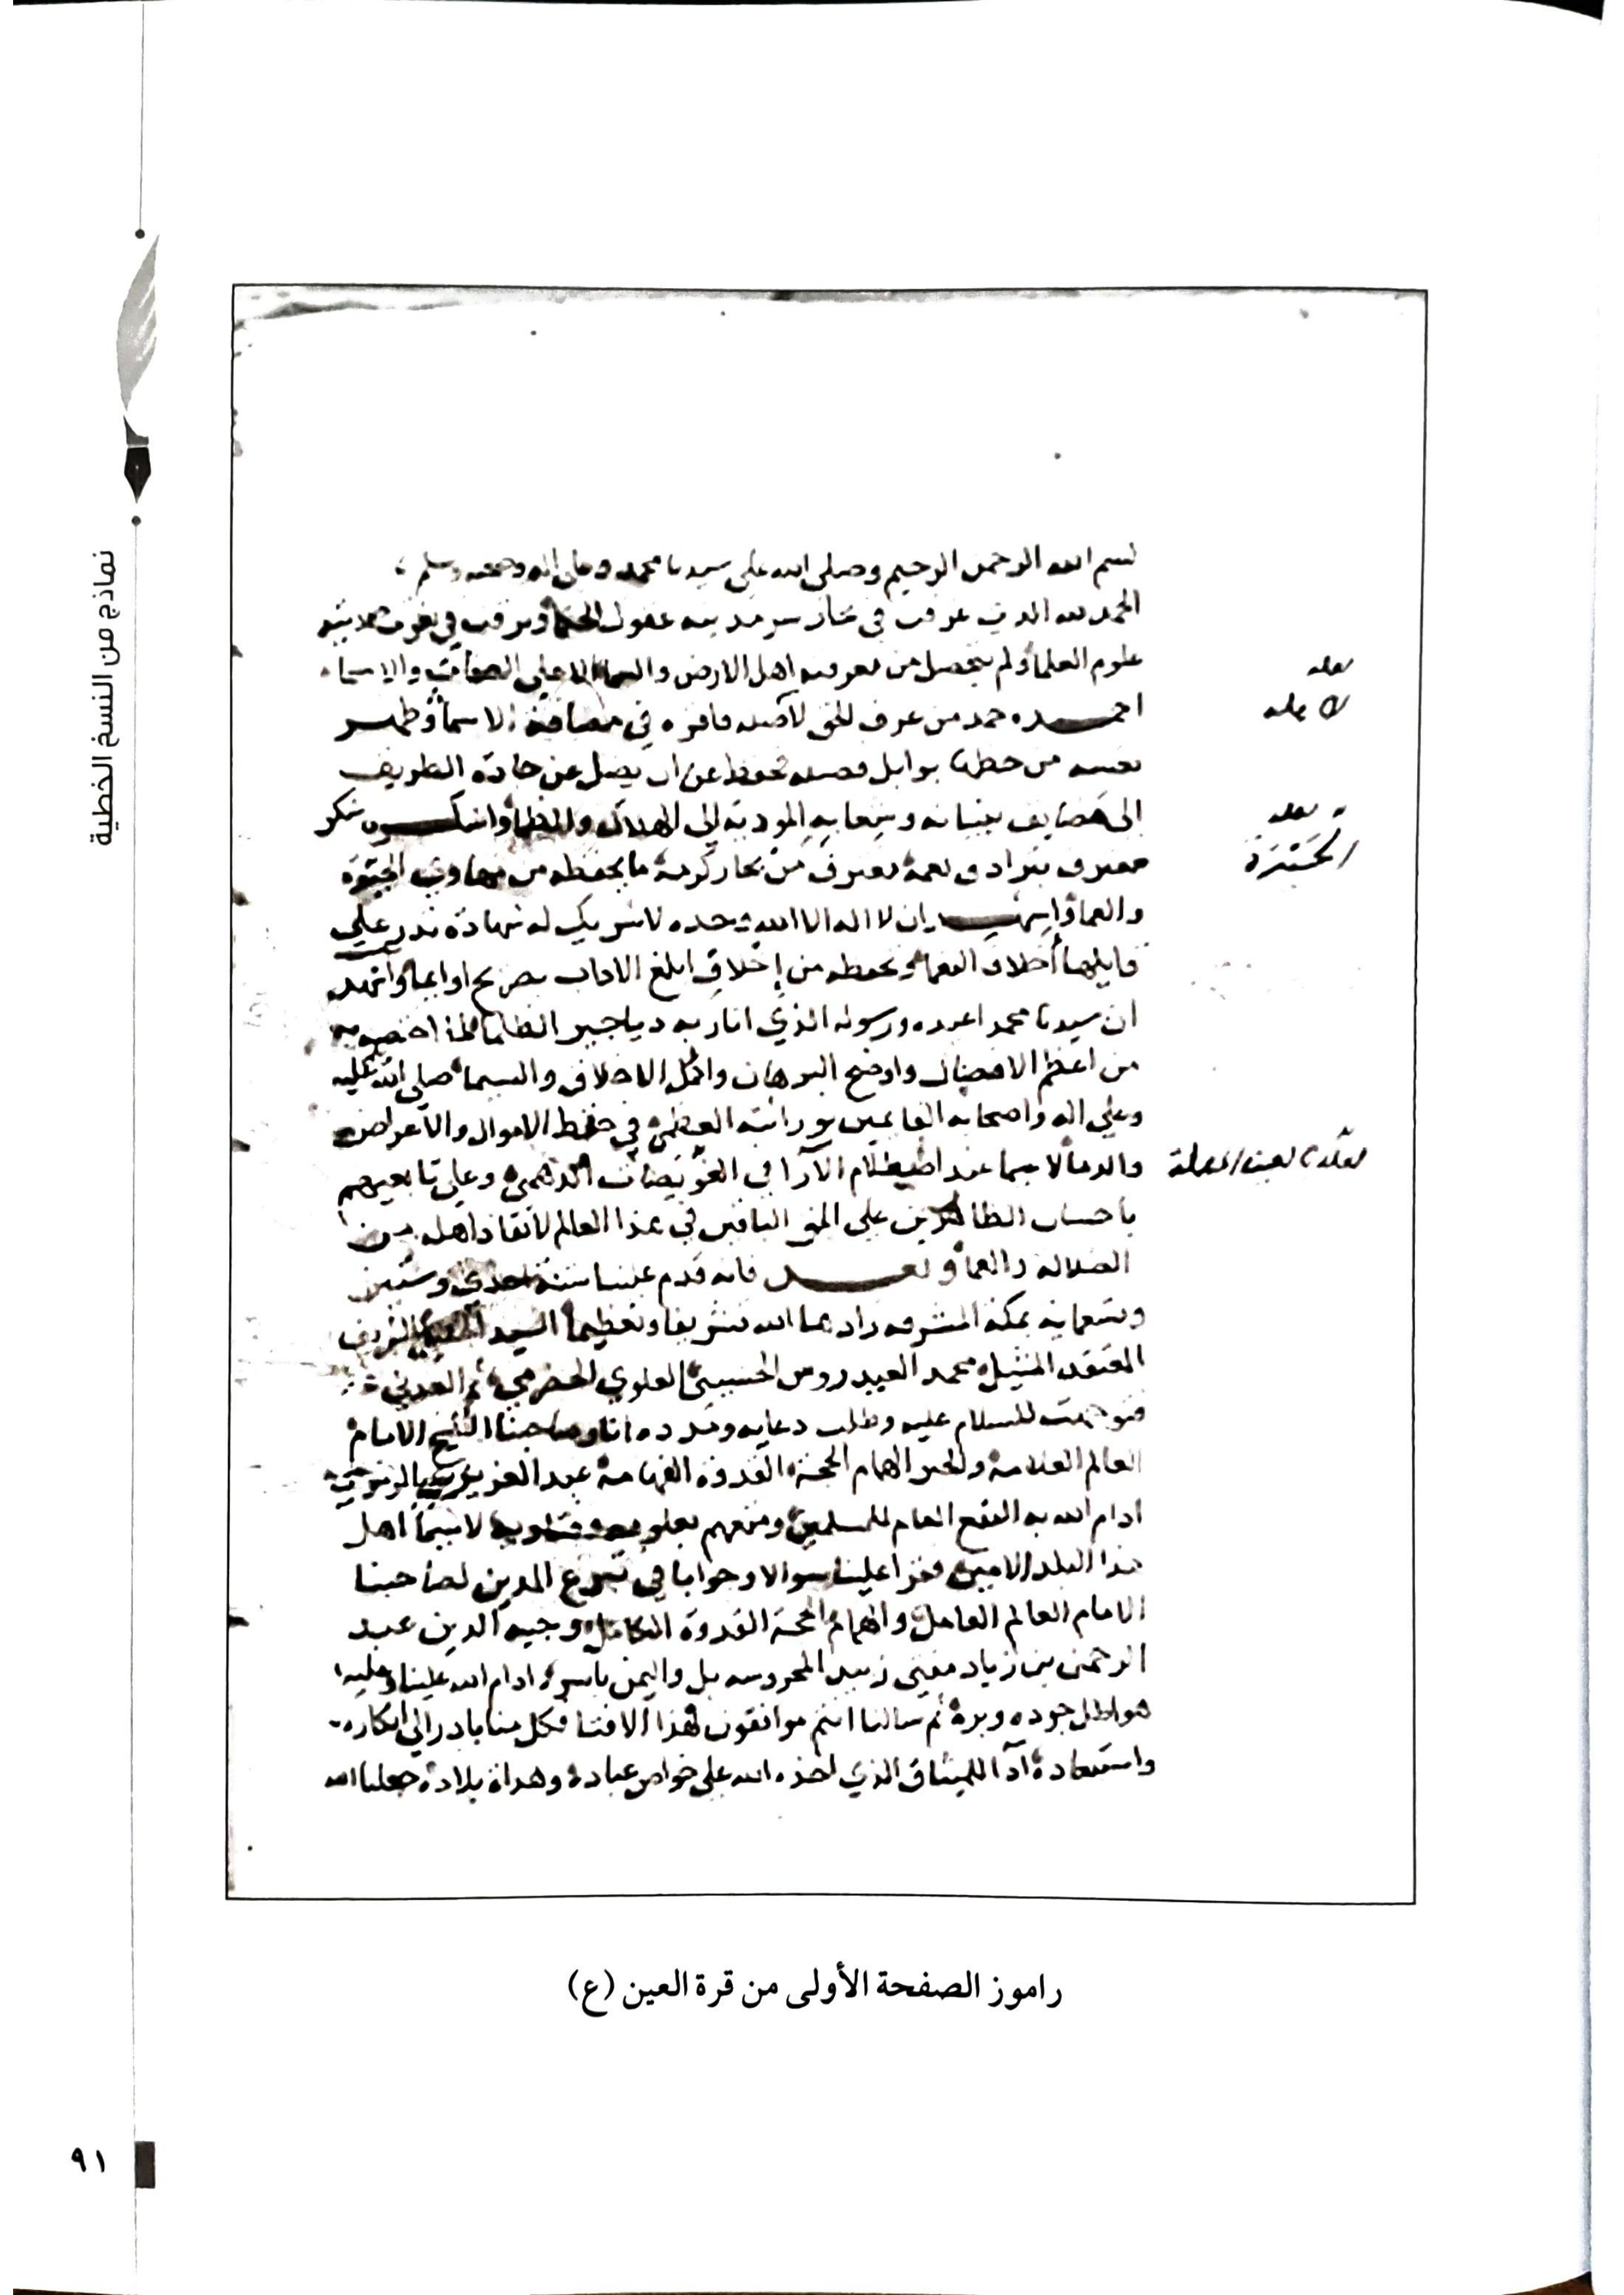 نماذج من النسخ الخطية
بسم الله الرحمن الرحيم وصلى الله على سيدنا محمد وعلى اله وصحبه وسلم
الحمد لله الذي غرقت في بحار سرمديته عقول
علوم العلماء ولم يتحصل من معرفته اهل الارض والسماء الا على الصفات والاسماء
لعله
احمده حمد من عرف الحق لاهله فافره في الاسماء وطهر
لاهله
نفسه من بوابل فضله محفوظ عن ان يضل عن جادة الطريق
الى مضايق وشعابه المودية الى الهلاك والظما واشكره شكر
لعله
معترف بترادف نعمه مغترف من بحار كرمه ما يحفظه من مهاوي
والعما واشهد ان لا اله الا الله وحده لا شريك له شهادة تدر على
قايلها اخلاف النعماء وتحفظه من اخلاق الاداب بصريح او ايما واشهد
ان سيدنا محمدا عبده ورسوله الذي انار به دياجير الظلما لما اختصه به
من اعظم الافضال واوضح البرهان واكمل الاخلاق والسيما صلى الله عليه
وعلى اله واصحابه القايمين بوراثته العظمى في حفظ الاموال والاعراض
والدما لا سيما عند الارا في الدهمى وعلى تابعيهم
لعله بالعين المهملة
باحسان الظاهرين على الحق الباقين في هذا العالم لانقاذ اهله من
الضلالة والعما وبعد فانه قدم علينا سنة احدى وستين
وتسعماية بمكة المشرفة زادها الله تشريفا وتعظيما السيد الشريف
المعتقد محمد العيدروس الحسيني العلوي الحضرمي ثم العدني
فتوجهت للسلام عليه وطلب دعايه ومدده انا وصاحبنا الشيخ الامام
العالم العلامة والحبر الهمام الحجة القدوة الفهامة عبد العزيز الزمزمي
ادام الله به النفع العام للمسلمين ومتعهم بعلومه لا سيما اهل
هذا البلد الامين فقرا علينا سوالا وجوابا في تبرع المدين لصاحبنا
الامام العالم العامل والهمام الحجة القدوة الكامل وجيه الدين عبد
الرحمن بن زياد مفتي زبيد المحروسة بل واليمن باسره ادام الله علينا وعليه
هواطل جوده وبره ثم سالنا انتم موافقون لهذا الافتا فكل منا بادر الى انكاره
واستبعاده ادا للميثاق الذي اخذه الله على خواص عباده وهداة بلاده جعلنا الله
راموز الصفحة الأولى من قرة العين (ع)
٩١